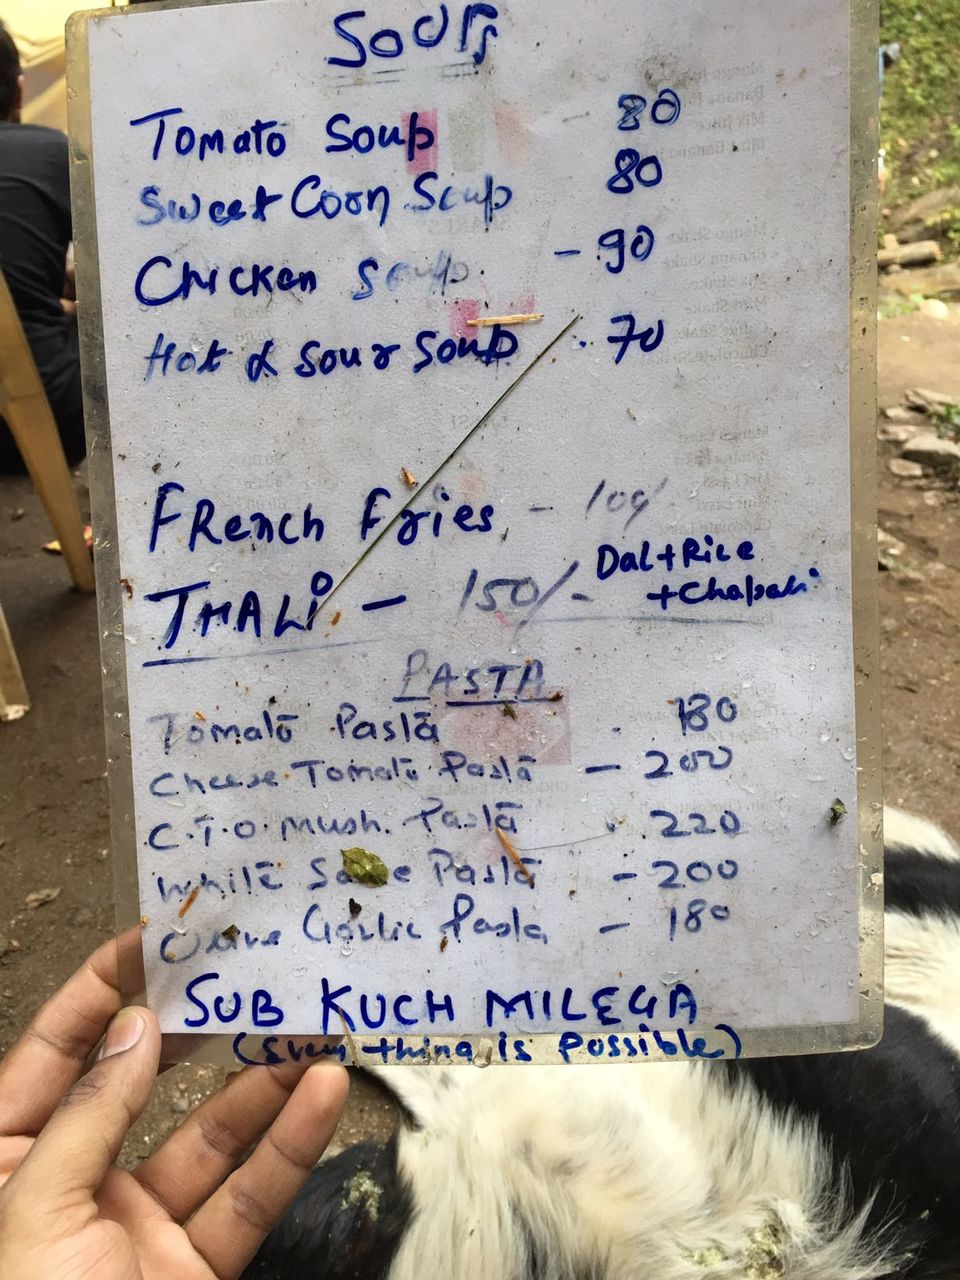 SOUPS
Tomato Soup - 80
Sweet Corn Soup 80
Chicken Soup - 90
Hot & Sour Soup . 70
French Fries - 100/
THALI - 150/- Dal+Rice
+Chapati
PASTA
Tomato Pasta . 180
Cheese Tomato Pasta - 200
C.T.O. Mush. Pasta . 220
White Sauce Pasta - 200
Olive Garlic Pasta - 180
SUB KUCH MILEGA
(Every thing is Possible)